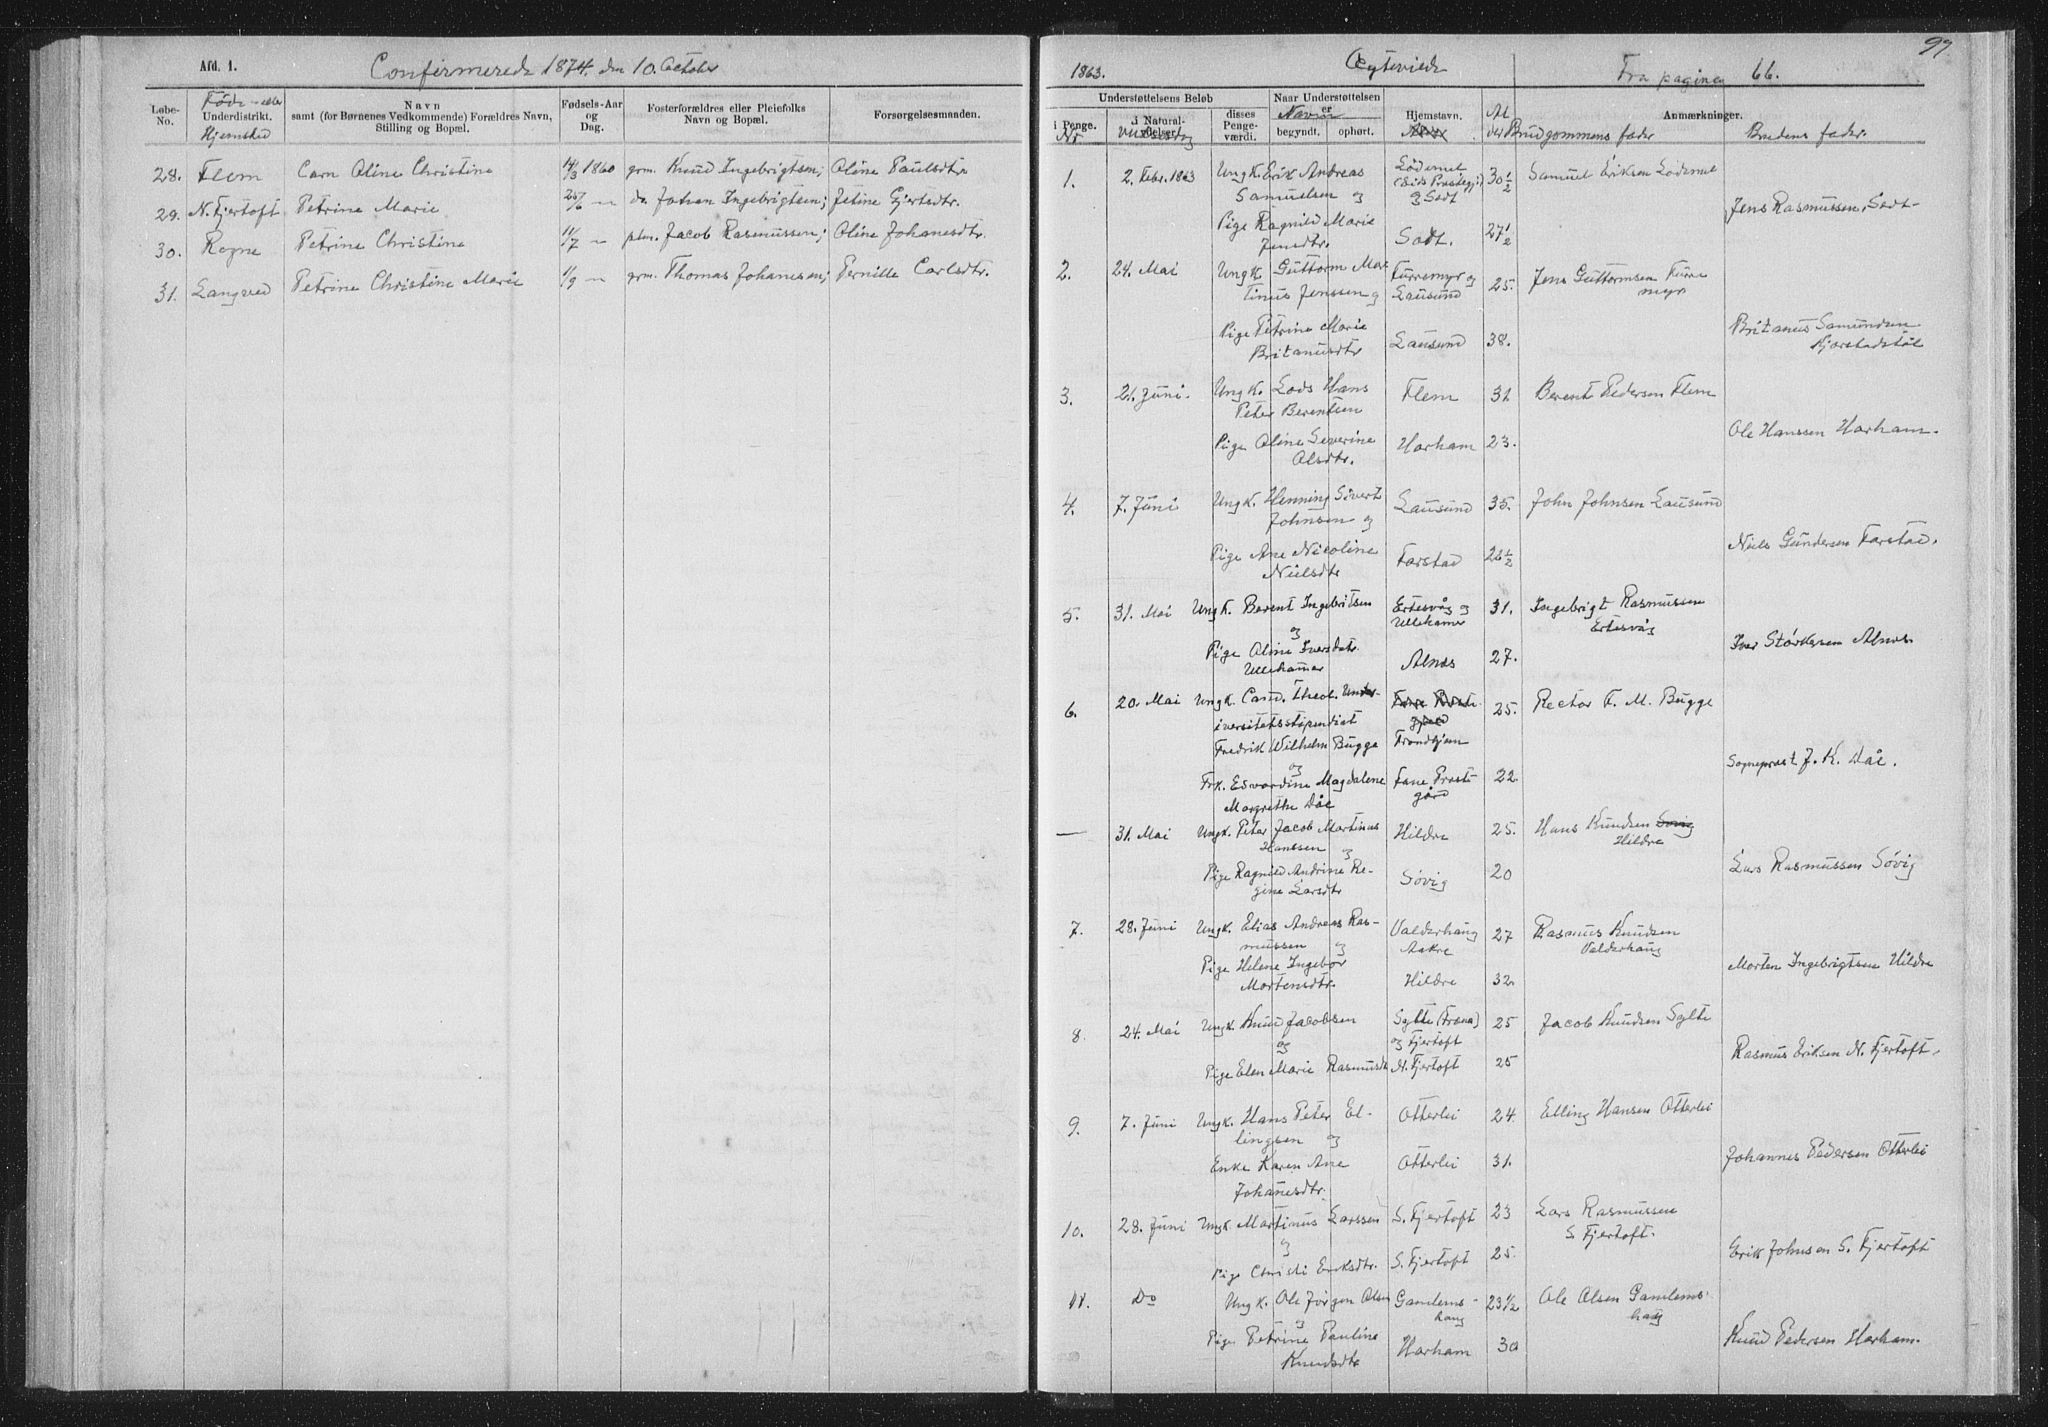 Afd. 1.
Confirmerede 1874. den 10. October
Løbe-No.
Føde- eller
Underdistrikt.
Hjemsted
Navn
samt (for Børnenes Vedkommende) Forældres Navn,
Stilling og Bopæl.
Fødsels-Aar
og
Dag.
Fosterforældres eller Pleiefolks
Navn og Bopæl.
Forsørgelsesmanden.
28. Flem Carn Oline Christine 14/3 1860 grm. Knud Ingebrigtsen; Oline Paulsdtr
29. N. Fjertoft Petrine Marie 25/6 — do Johan Ingebrigtsen; Jetine Gjertsdtr.
30. Rogne Petrine Christine 11/7 — plm. Jacob Rasmussen; Oline Johanesdtr.
31. Langved Petrine Christine Marie 1/9 — grm. Thomas Johanesen; Pernille Carlsdtr.
97
1863.
Ægteviede
Fra pagina 66.
Understøttelsens Beløb
i Penge.
Nr
i Natural-
ydelser.
disses
Penge-
værdi.
Naar Understøttelsen
er
Navn
begyndt.
ophørt.
Hjemstavn.
Al
der
Anmærkninger.
Brudgommens fader
Brudens fader.
1. 2. Febr. 1863 Ung K. Erik Andreas
Samuelsen og
Lødemel
(Eids Prestegj.)
og Sødt
30 1/2 Samuel Eriksen Lødemel
Pige Ragnild Marie
Jensdtr.
Sødt. 27 1/2
Jens Rasmussen Sødt
2. 24. Mai Ung K. Guttorm Mar
tinus Jenssen og
Furremyr og
Lausund
25. Jens Guttormsen Furre
myr
Pige Petrine Marie
Britanusdtr
Lausund 38.
Britanus Samundsen
Kjørstadstøl
3. 21. Juni. Ung K. Lods Hans
Peter Berentsen
Flem 31 Berent Pedersen Flem
Pige Oline Severine
Olsdtr.
Harham 23.
Ole Hanssen Harham.
4. 7. Juni Ung K. Henning Sivert
Johnsen og
Lausund 35. John Johnsen Lausund
Pige Ane Nicoline
Nielsdtr
Farstad
Niels Gundersen Farstad.
5. 31. Mai Ung K. Berent Ingebritsen
og
Ertesvåg og
Ullehamer
31. Ingebrigt Rasmussen
Ertesvåg
Pige Oline Iversdatr.
Ullehamer
Alnes 27.
Iver Størkersen Alnes.
6. 20. Mai Ung K. Cand. Theol. Un
iversitetsstipendiat
Fredrik Wilhelm Bugge
og
Trondhjem
25. Rector F. M. Bugge
Frk. Esvardine Magdalene
Margrethe Dåe
Fane Prest-
gård
22
Sogneprest J. K. Dåe.
— 31. Mai Ung K. Peter Jacob Martinus
Hanssen og
Hildre 25. Hans Knudsen Søvig
Hildre
Pige Ragnild Andrine Re-
gine Larsdtr
Søvig 20
Lars Rasmussen Søvig
7. 28. Juni Ung K. Elias Andreas Ras-
mussen og
Valderhaug
Aakre
27 Rasmus Knudsen
Valderhaug
Pige Helene Ingebor
Mortensdtr.
Hildre 32
Morten Ingebrigtsen Hildre
8. 24. Mai Ung K. Knud Jacobsen
og
Sylte (Fræna)
og Fjertoft
25 Jacob Knudsen Sylte
Pige Elen Marie Rasmusdtr N. Fjertoft 25
Rasmus Eriksen N. Fjertoft.
9. 7. Juni Ung K. Hans Peter El-
lingsen og
Otterlei 24. Elling Hansen Otterlei
Enke Karen Ane
Johanesdtr.
Otterlei 31.
Johannes Pedersen Otterlei
10. 28. Juni Ung K Martinus Larssen
og
S. Fjertoft 23 Lars Rasmussen
S. Fjertoft.
Pige Christi Eriksdtr. S. Fjertoft 25.
Erik Johnsen S. Fjertoft
11. Do Ung K. Ole Jørgen Olsen
og
Gamlems-
haug
23 1/2 Ole Olsen Gamlems-
haug
Pige Petrine Pauline
Knudsdtr
Harham 30
Knud Pedersen Harham.